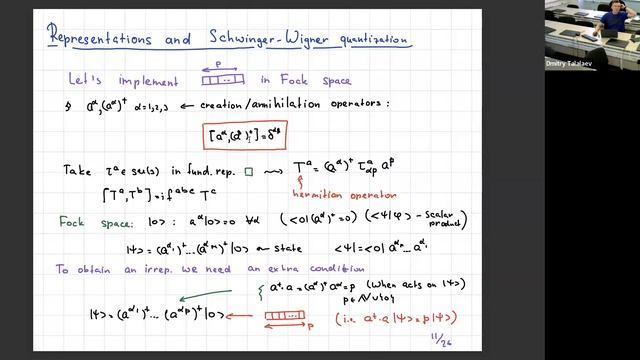 Representations and Schwinger-Wigner quantization
p
Let's implement in Fock space
a^α, (a^α)^+ α=1,2,3 ← creation/annihilation operators:
[a^α, (a^β)^+] = δ^αβ
Take τ^a ∈ su(3) in fund. rep. □ ⇝ T^a = (a^α)^+ τ^a_αβ a^β
[T^a, T^b] = i f^abc T^c
hermitian operator
Fock space: |0>: a^α|0>=0 ∀α (<0|(a^α)^+=0) (<ψ|φ> - scalar product)
|ψ> = (a^α1)^+ ... (a^αn)^+ |0> ← state <ψ| = <0| a^αn ... a^α1
To obtain an irrep. we need an extra condition
a^+·a = (a^α)^+ a^α = p (when acts on |ψ>)
p ∈ ℕ ∪ {0}
|ψ> = (a^α1)^+ ... (a^αp)^+ |0> ← p (i.e. a^+·a |ψ> = p|ψ>)
11/26
Dmitry Talalaev